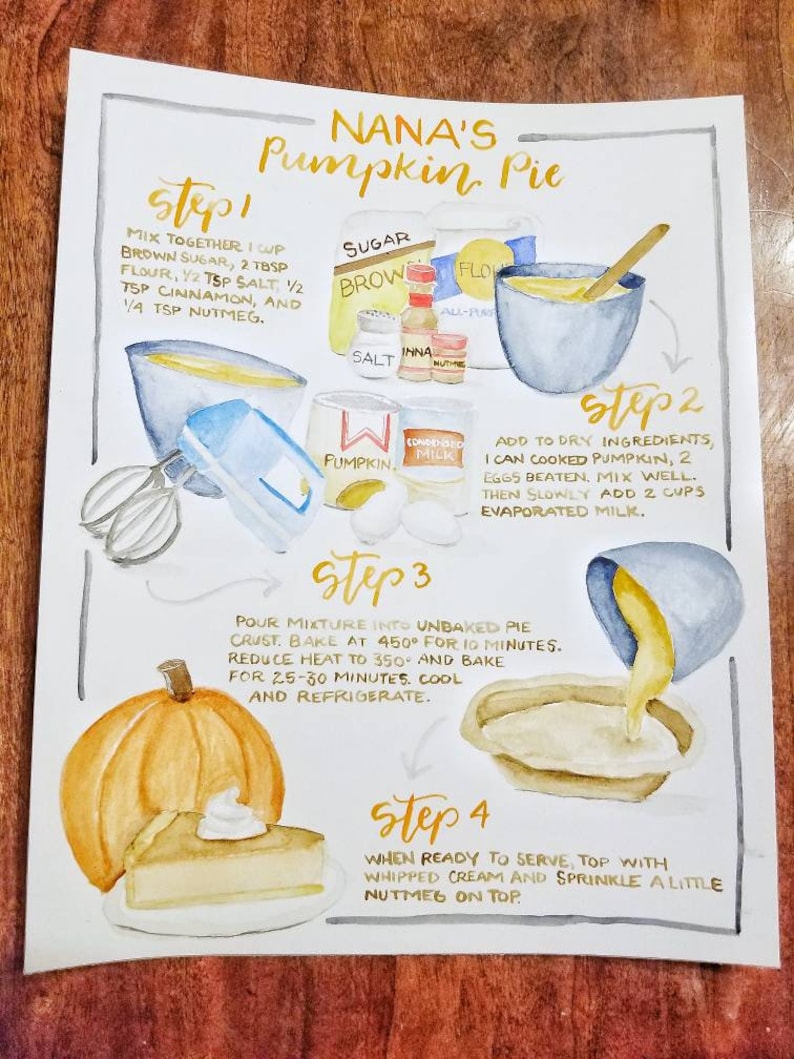 NANA'S
Pumpkin Pie
Step 1
MIX TOGETHER 1 CUP
BROWN SUGAR, 2 TBSP
FLOUR, 1/2 TSP SALT, 1/2
TSP CINNAMON, AND
1/4 TSP NUTMEG.
SUGAR
BROWN
FLOU
ALL-PURP
SALT
INNA
NUTMEG
Step 2
ADD TO DRY INGREDIENTS,
1 CAN COOKED PUMPKIN, 2
EGGS BEATEN. MIX WELL.
THEN SLOWLY ADD 2 CUPS
EVAPORATED MILK.
PUMPKIN
CONDENSED
MILK
Step 3
POUR MIXTURE INTO UNBAKED PIE
CRUST. BAKE AT 450° FOR 10 MINUTES.
REDUCE HEAT TO 350° AND BAKE
FOR 25-30 MINUTES. COOL
AND REFRIGERATE.
Step 4
WHEN READY TO SERVE, TOP WITH
WHIPPED CREAM AND SPRINKLE A LITTLE
NUTMEG ON TOP.